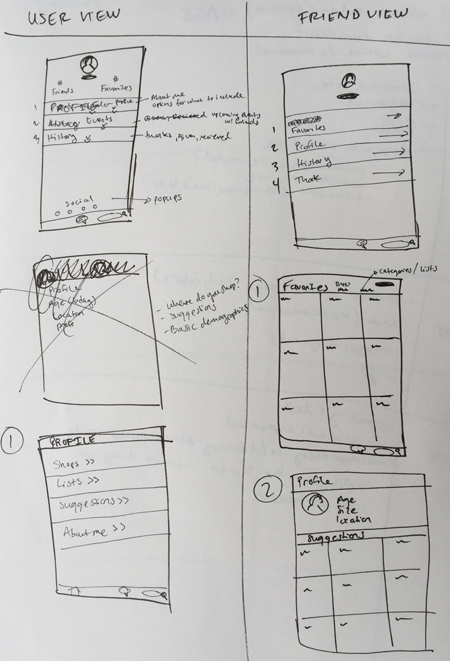 USER VIEW
FRIEND VIEW
#
#
Friends
Favorites
1
Profile
About me
options for what to include
2
Events
upcoming events
w/ friends
3
History
thanks, given, received
Social
popups
Profile
Age
Location
- Where do you shop?
- Suggestions
- Basic demographics
1
PROFILE
Shops >>
Lists >>
Suggestions >>
About me >>
1
Favorites
2
Profile
3
History
4
Thank
1
Favorites
categories/lists
2
Profile
Age
Size
Location
Suggestions